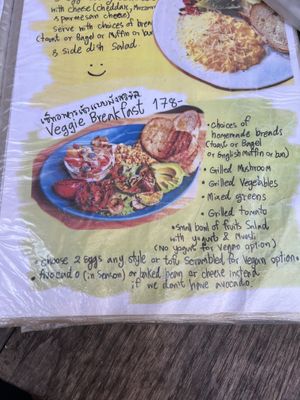 with cheese (cheddar, Mozzarella
& parmesan cheese)
Serve with choices of bread
(toast or Bagel or Muffin or bun)
& side dish Salad.
Veggie Breakfast 178-
• choices of
homemade breads
(toast or Bagel
or English muffin or bun)
• Grilled Mushroom
• Grilled Vegetables
• Mixed greens
• Grilled tomato
• Small bowl of fruits Salad
with yogurt & Muesli
(No yogurt for Vegan option)
• choose 2 eggs any style or tofu Scrambled for Vegan option •
• Avocado (in season) or baked bean or cheese instead
if we don't have avocado.